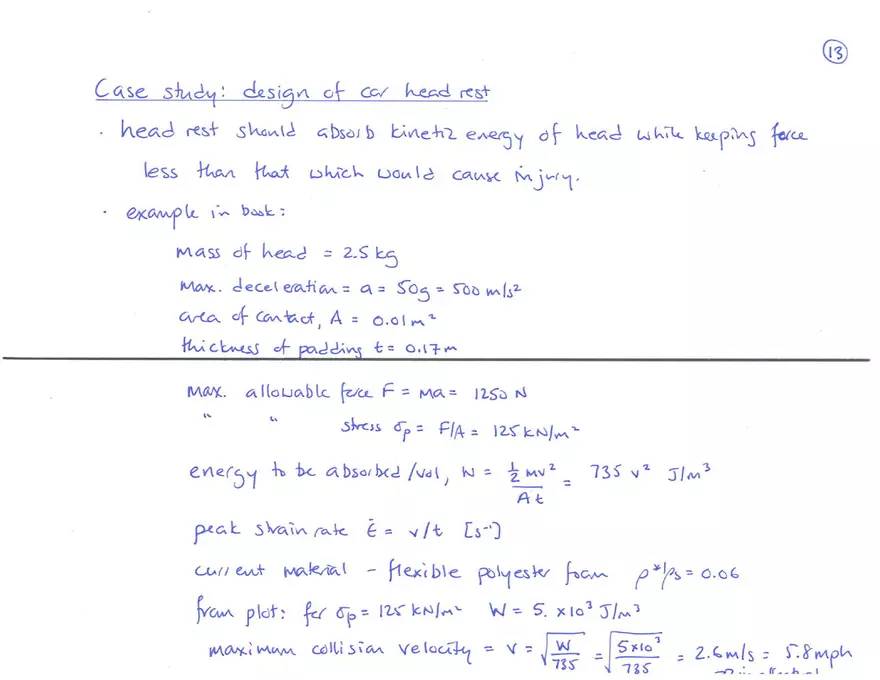 13
Case study: design of car head rest
· head rest should absorb kinetic energy of head while keeping force
less than that which would cause injury.
· example in book:
mass of head = 2.5 kg
Max. deceleration = a = 50g = 500 m/s²
area of contact, A = 0.01 m²
thickness of padding t = 0.17m
Max. allowable force F = ma = 1250 N
" " stress σp = F/A = 125 kN/m²
energy to be absorbed/vol, W = ½mv²/At = 735 v² J/m³
peak strain rate ε̇ = v/t [s⁻¹]
current material – flexible polyester foam ρ*/ρs = 0.06
from plot: for σp = 125 kN/m² W = 5. x10³ J/m³
maximum collision velocity = v = √(W/735) = √(5x10³/735) = 2.6m/s = 5.8mph